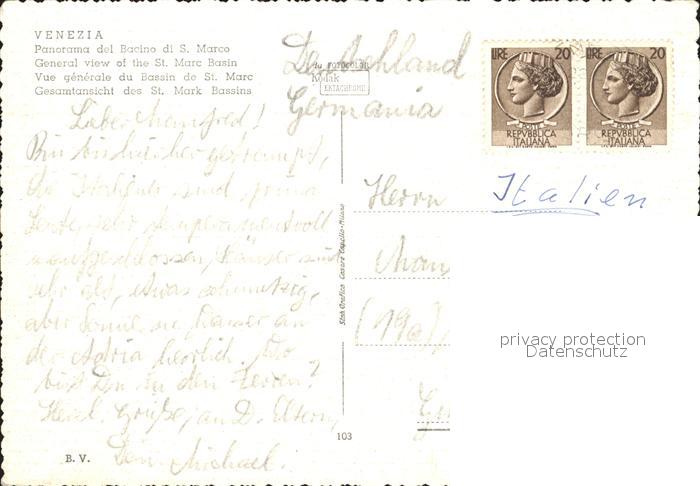 VENEZIA
Panorama del Bacino di S. Marco
General view of the St. Marc Basin
Vue générale du Bassin de St. Marc
Gesamtansicht des St. Mark Bassins
da FOTOCOLOR
Kodak
EKTACHROME
Deutschland
Germania
LIRE 20
POSTE
REPVBBLICA
ITALIANA
LIRE 20
POSTE
REPVBBLICA
ITALIANA
Lieber Manfred!
Bin bis hierher getrampt,
die Italiener sind prima
Leute, sehr temperamentvoll
u. aufgeschlossen, Häuser sind
sehr alt, etwas schmutzig,
aber Sonne u.
der Adria herrlich. Wo
bist Du in den Ferien?
Herzl. Grüße, an D. Eltern,
Dein Michael.
Herrn
Italien
Man
(19a)
Stab. Grafico Cesare Capello - Milano
103
B. V.
privacy protection
Datenschutz